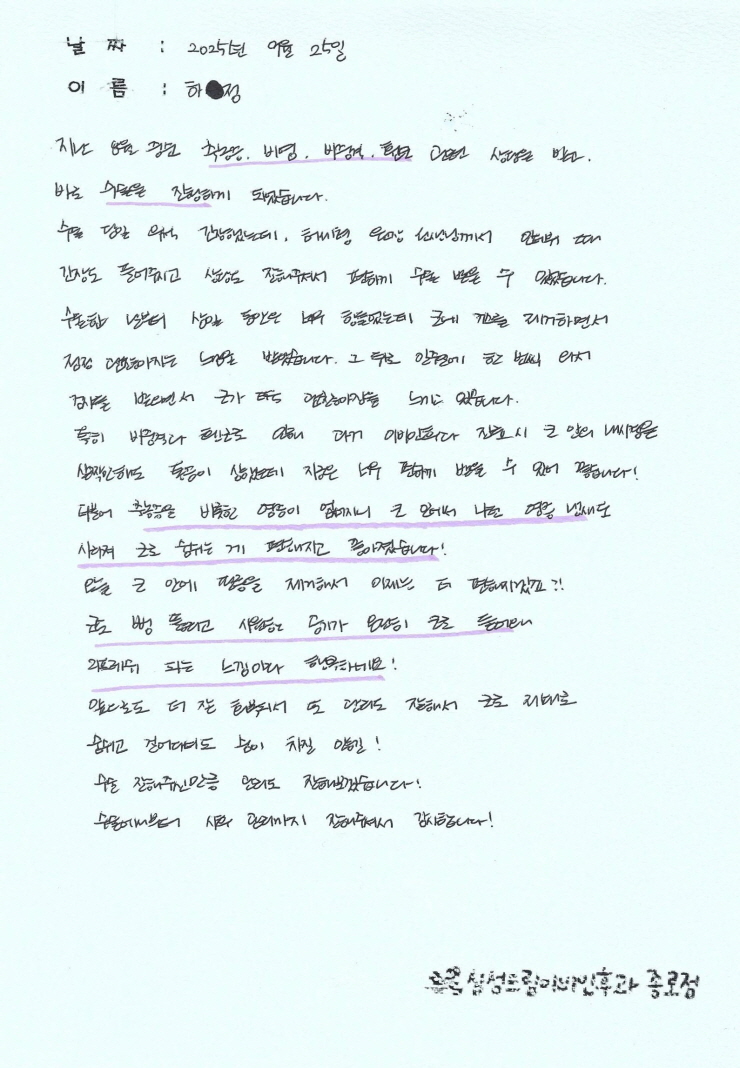 날 짜 : 2025년 9월 25일
이 름 : 하 정
지난 8월 중순 축농증, 비염, 비중격, 편도 관련 상담을 받고,
바로 수술을 진행하게 되었습니다.
수술 당일 무척 긴장했는데, 원장 선생님께서 안심 때
긴장도 풀어주시고 상담도 잘해주셔서 편하게 수술 받을 수 있었습니다.
수술한 날부터 삼일 동안은 너무 힘들었는데 코에 거즈를 제거하면서
점점 편안해지는 느낌을 받았습니다. 그 뒤로 일주일에 한 번씩 와서
검사를 받으면서 코가 더욱 편안해짐을 느끼고 있습니다.
특히 비중격 인해 과거 이비인후과 진료 시 코 안의 내시경을
살짝만해도 통증이 심했는데 지금은 너무 편하게 받을 수 있어 좋습니다!
더불어 축농증을 비롯한 염증이 없어지니 코 안에서 나던 염증 냄새도
사라져 코로 숨쉬는 게 편해지고 좋아졌습니다!
오늘 코 안에 을 제거해서 이제는 더 편해지겠죠?!
코도 뻥 뚫리고 시원한 공기가 온전히 코로 들어오니
리프레쉬 되는 느낌이라 행복하네요!
앞으로도 더 잘 회복되서 또 관리도 잘해서 코로 제대로
숨쉬고 걸어다녀도 숨이 차질 않길!
수술 잘해주신만큼 관리도 잘해보겠습니다!
수술에서부터 사후 관리까지 잘해주셔서 감사합니다!
숨쉼 삼성드림이비인후과 종로점